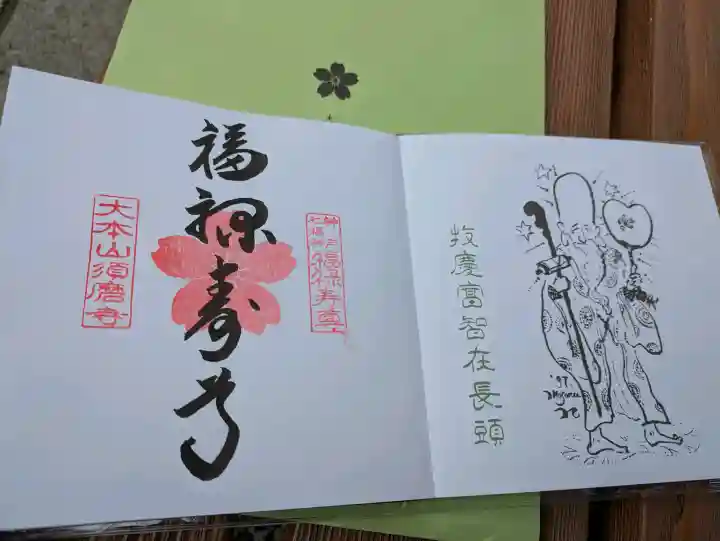 福禄寿尊
大本山須磨寺
神戸七福神
福禄寿尊
教慶富智在長頭
'97